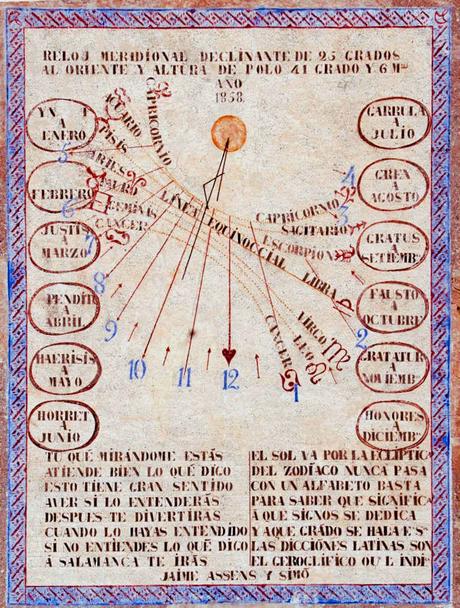 RELOJ MERIDIONAL DECLINANTE DE 25 GRADOS
AL ORIENTE Y ALTURA DE POLO 41 GRADO Y 6 Mos
AÑO
1858.
YN
A
ENERO
FEBRERO
JUSTIS
A
MARZO
PENDIT
A
ABRIL
HAERISIS
A
MAYO
HORRET
A
JUNIO
GARRULA
A
JULIO
GREX
A
AGOSTO
GRATUS
A
SETIEMBe
FAUSTO
A
OCTUBRE
GRATATUR
A
NOVIEMBe
HONORES
A
DICIEMBe
CAPRICORNIO
ACUARIO
PISIS
ARIES
TAURO
GEMINIS
CANCER
LINEA EQUINOCCIAL
CAPRICORNIO
SAGITARIO
ESCORPION
LIBRA
VIRGO
LEO
CANCER
5
6
7
8
9
10
11
12
1
2
3
4
TU QUÉ MIRÁNDOME ESTÁS
ATIENDE BIEN LO QUÉ DIGO
ESTO TIENE GRAN SENTIDO
AVER SÍ LO ENTENDERÁS
DESPUES TE DIVERTIRÁS
CUANDO LO HAYAS ENTENDIDO
SÍ NO ENTIENDES LO QUÉ DIGO
Á SALAMANCA TE IRÁS
EL SOL VA POR LA ECLÍPTIC
DEL ZODÍACO NUNCA PASA
CON UN ALFABETO BASTA
PARA SABER QUE SIGNIFICA
Á QUE SIGNOS SE DEDICA
Y A QUE GRÁDO SE HALA E'S
LAS DICCIÓNES LATINAS SON
EL GEROGLÍFICO QU'L INDI
JAIME ASSENS Y SIMÓ